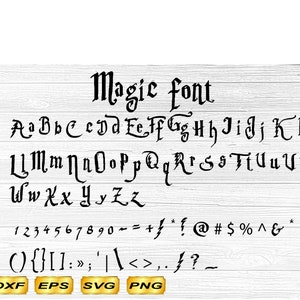 Magic font
AaBbCcDdEeFfGgHhIiJjKk
LlMmNnOoPpQqRrSsTtUuVv
WwXxYyZz
1234567890-=+/*!@#$%^&*
(){}[]:»;'|\<>,./?_
DXF EPS SVG PNG